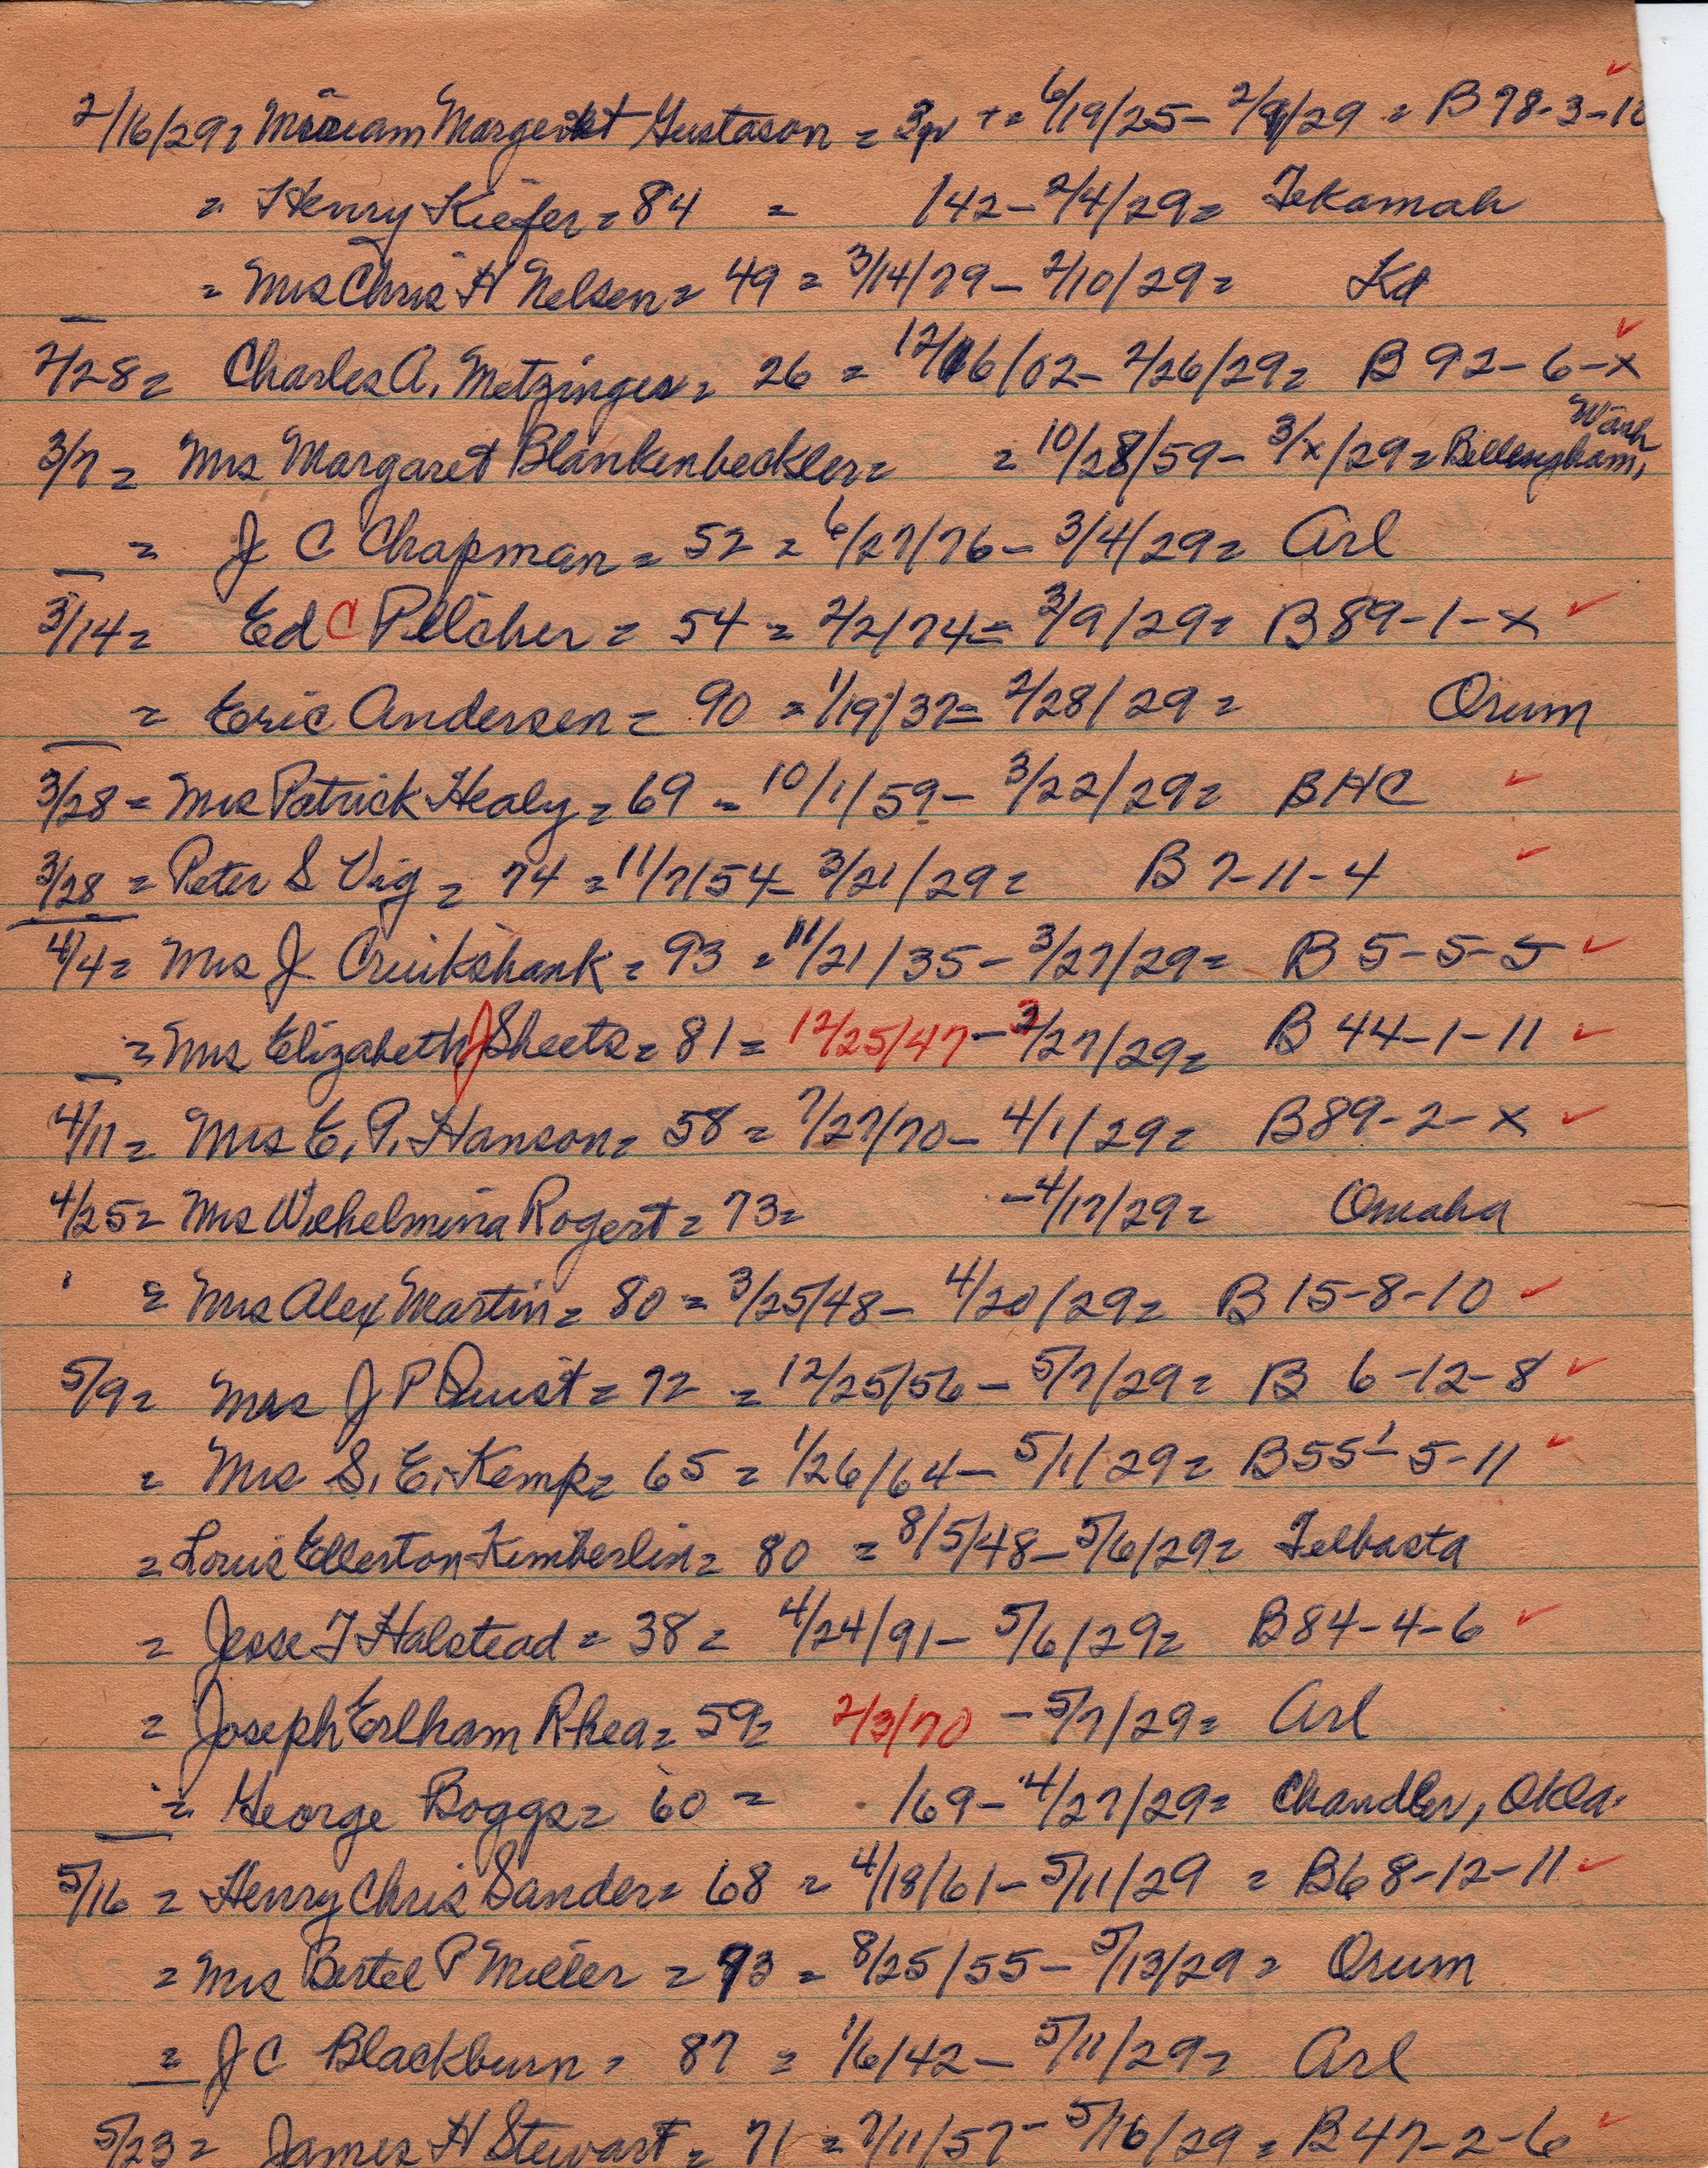 2/16/29= Miriam Margeret Gustason = 3yr += 6/19/25- 2/9/29 = B 98-3-10
= Henry Kiefer = 84 = /42- 2/4/29= Tekamah
= Mrs Chris H Nelsen = 49 = 3/14/79 - 2/10/29= Ka
2/28= Charles A. Metzinger= 26 = 12/16/02- 2/26/29= B 92-6-x
3/7 = Mrs Margaret Blankenbeckler= = 10/28/59- 3/x/29= Bellengham, Wash
= J C Chapman = 52 = 6/27/76- 3/4/29= Arl
3/14= Ed C Pilcher = 54 = 2/2/74= 3/9/29= B 89-1-x
= Eric Andersen = 90 = 1/19/37= 2/28/29 = Orum
3/28 = Mrs Patrick Healy = 69 = 10/1/59- 3/22/29= BHC
3/28 = Peter S Vig = 74 = 11/7/54- 3/21/29= B 7-11-4
4/4= Mrs J Cruikshank = 93 = 11/21/35- 3/27/29= B 5-5-5
= Mrs Elizabeth J Sheets= 81= 12/25/47- 3/27/29= B 44-1-11
4/11= Mrs E. P. Hanson= 58= 7/27/70- 4/1/29= B89-2-x
4/25= Mrs Wilhelmina Rogert= 73= -4/17/29= Omaha
= Mrs Alex Martin= 80= 3/25/48- 4/20/29= B 15-8-10
5/9= Mrs J P Quist= 72 = 12/25/56- 5/7/29= B 6-12-8
= Mrs S. E. Kemp= 65= 1/26/64- 5/1/29= B55-5-11
= Louis Ellerton Kimberlin= 80 = 8/5/48- 5/6/29= Telbasta
= Jesse T Halstead= 38= 4/24/91- 5/6/29= B84-4-6
= Joseph Erlham Rhea= 59= 2/3/70 - 5/7/29= Arl
= George Boggs= 60 = /69- 4/27/29= Chandler, Okla.
5/16 = Henry Chris Sander= 68 = 4/18/61- 5/11/29 = B68-12-11
= Mrs Bertel P Miller = 73 = 8/25/55- 5/13/29= Orum
= J C Blackburn= 87 = 1/6/42- 5/11/29= Arl
5/23= James H Stewart= 71 = 7/11/57- 5/16/29= B47-2-6